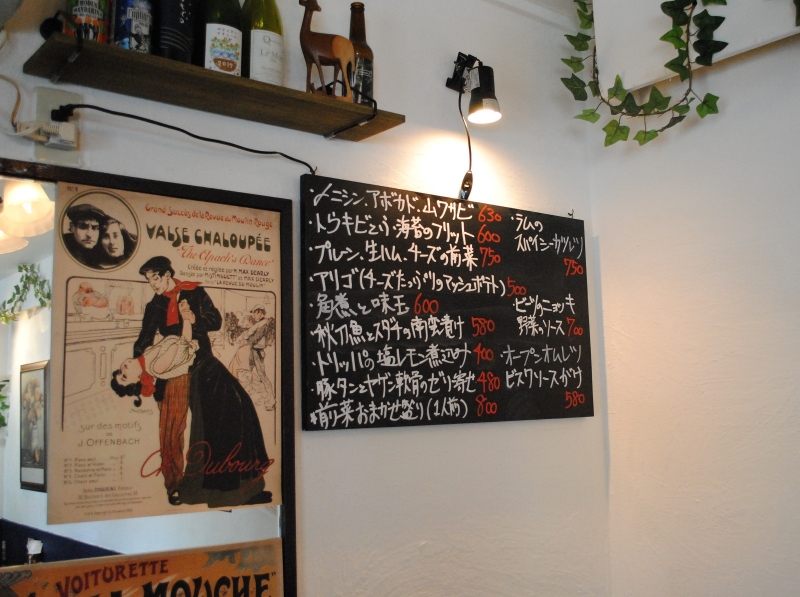 Grand Succès de la Revue du Moulin Rouge
VALSE CHALOUPÉE
"The Apach's Dance"
Créée et réglée par M. MAX DEARLY
"LA REVUE DU MOULIN"
sur des motifs
de
J. OFFENBACH
Ch. Dubourg
VOITURETTE
LA MOUCHE
・〆ニシン、アボカド、山ワサビ 630
・トウキビとバラ海苔のフリット 600
・プルーン、生ハム、チーズの前菜 750
・アリゴ(チーズたっぷりのマッシュポテト) 500
・角煮と味玉 600
・秋刀魚とスダチの南蛮漬け 580
・トリッパの塩レモン煮込み 400
・豚タンとヤゲン軟骨のゼリー寄せ 480
*前菜おまかせ盛り(1人前) 800
・ラムの
スパイシーカツレツ
750
・ビーツのニョッキ
野菜のソース 700
・オープンオムレツ
ビスクソースがけ
580